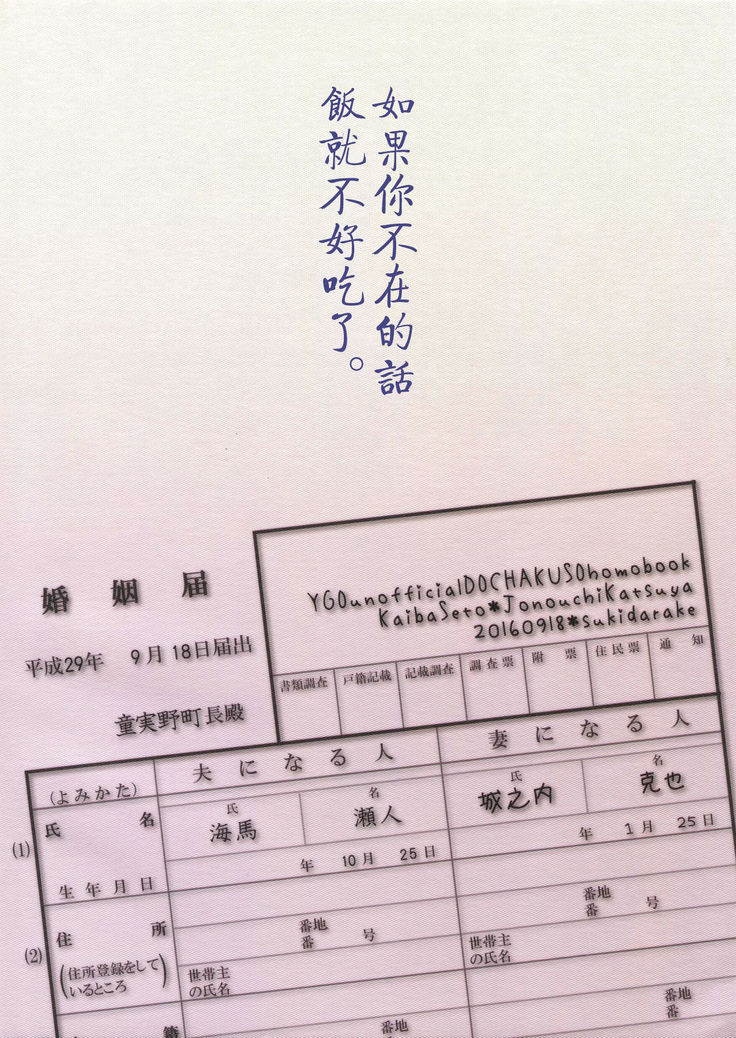 如果你不在的話
飯就不好吃了。
婚姻届
平成29年 9月18日届出
童実野町長殿
YGOunofficialDOCHAKUSOhomobook
KaibaSeto*JonouchiKatsuya
20160918*sukidarake
書類調査 戸籍記載 記載調査 調査票 附票 住民票 通知
夫になる人 妻になる人
(よみかた)
(1) 氏名 氏 海馬 名 瀬人 氏 城之内 名 克也
生年月日 年 10月 25日 年 1月 25日
(2) 住所 番地 番 号 番地 番 号
(住所登録をして
いるところ)
世帯主
の氏名
世帯主
の氏名
籍 番地 番 番地 番